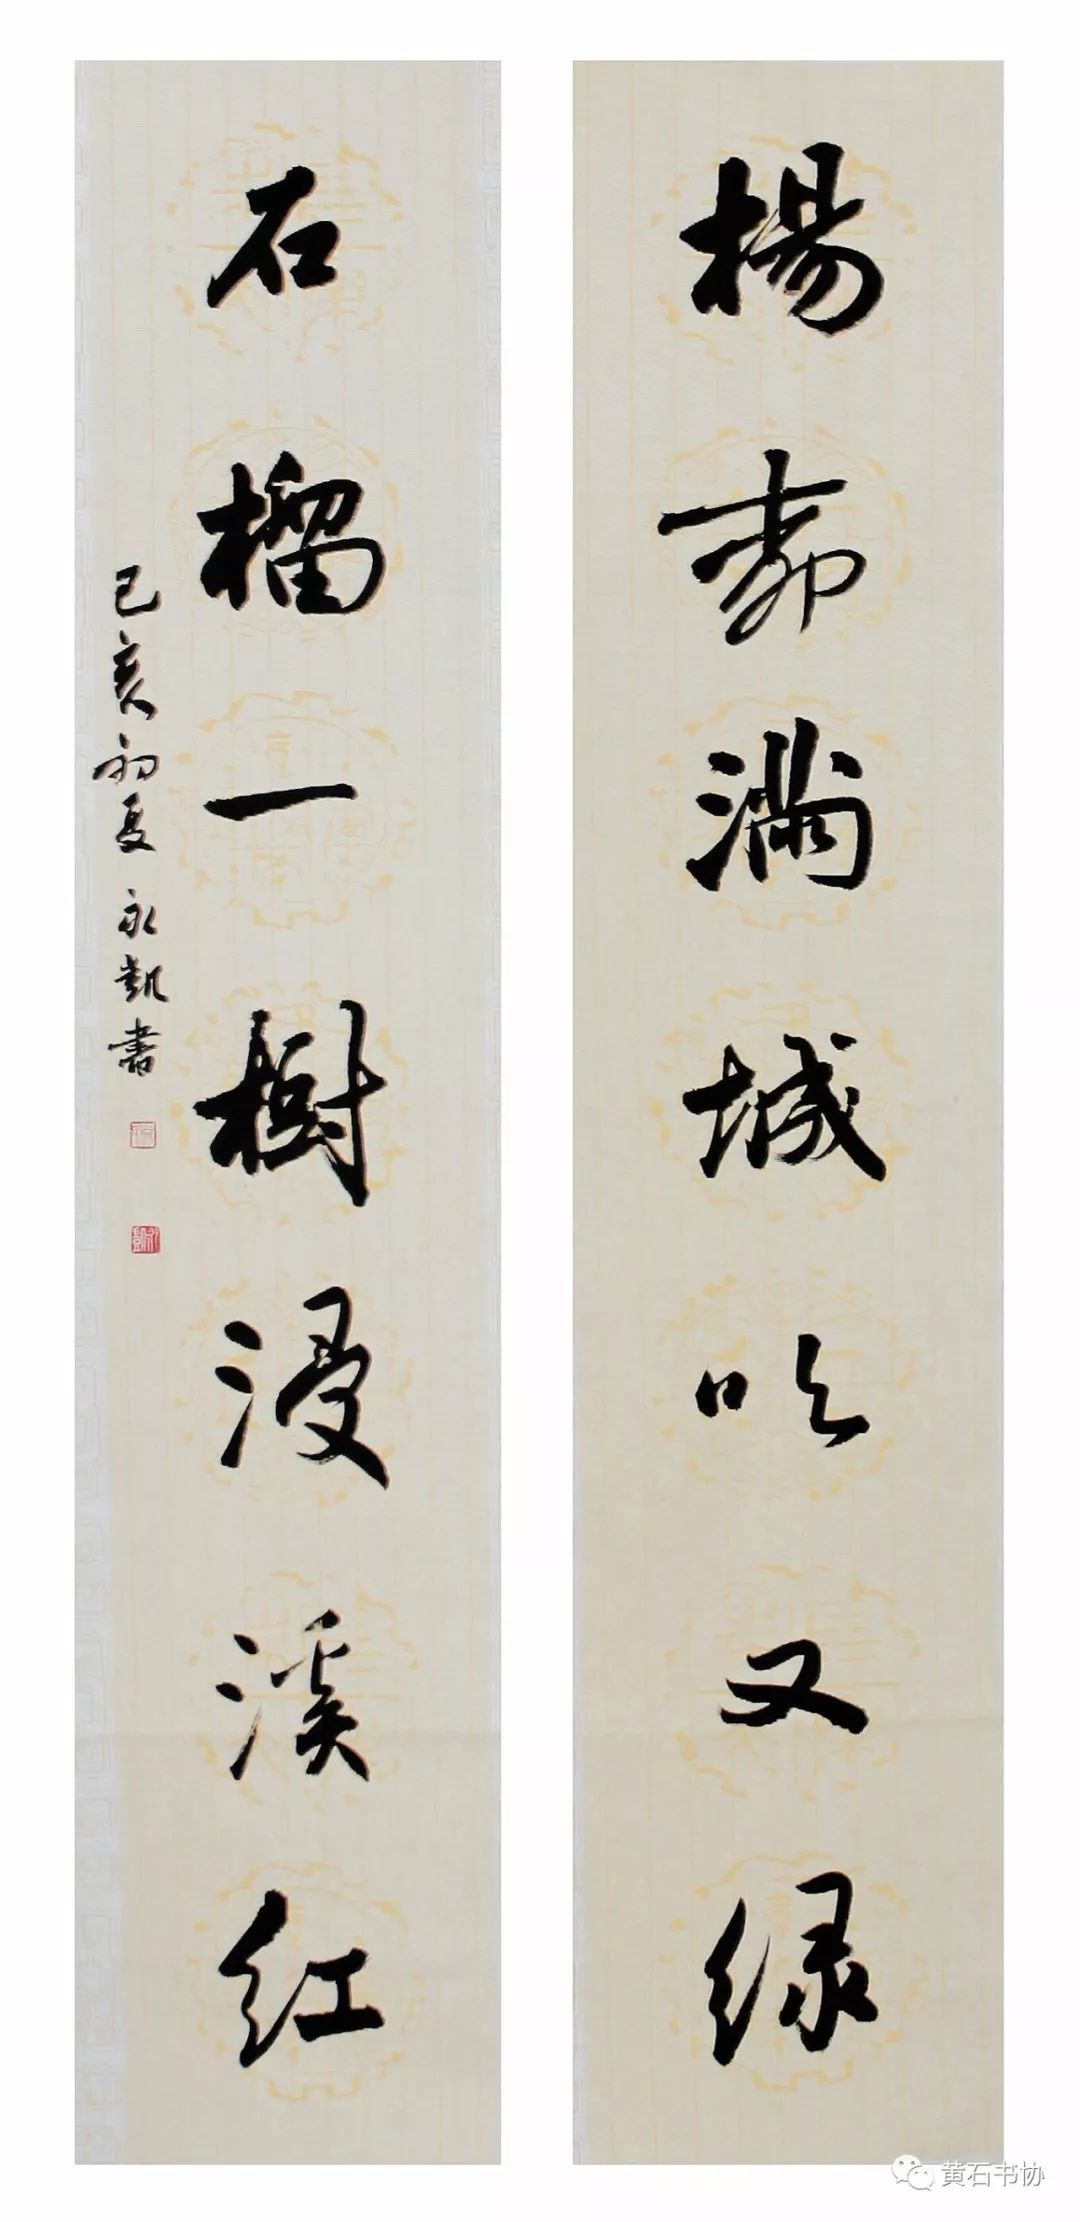 楊柳满城吹又绿
石榴一樹浸溪红
己亥初夏永凱書
黄石书协